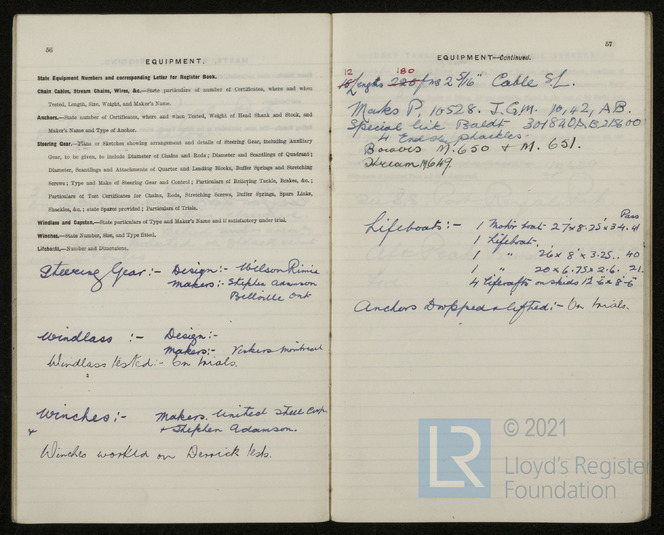 56
EQUIPMENT.
State Equipment Numbers and corresponding Letter for Register Book.
Chain Cables, Stream Chains, Wires, &c.—State particulars of number of Certificates, where and when
Tested, Length, Size, Weight, and Maker's Name.
Anchors.—State number of Certificates, where and when Tested, Weight of Head Shank and Stock, and
Maker's Name and Type of Anchor.
Steering Gear.—Plans or Sketches showing arrangement and details of Steering Gear, including Auxiliary
Gear, to be given, to include Diameter of Chains and Rods; Diameter and Scantlings of Quadrant;
Diameter, Scantlings and Attachments of Quarter and Leading Blocks, Buffer Springs and Stretching
Screws; Type and Make of Steering Gear and Control; Particulars of Relieving Tackle, Brakes, &c.;
Particulars of Test Certificates for Chains, Rods, Stretching Screws, Buffer Springs, Spare Links,
Shackles, &c.; state Spares provided; Particulars of Trials.
Windlass and Capstan.—State particulars of Type and Maker's Name and if satisfactory under trial.
Winches.—State Number, Size, and Type fitted.
Lifeboats.—Number and Dimensions.
Steering Gear:- Design:- Wilson Pirrie
Makers:- Stephen Adamson
Belleville Ont
Windlass :- Design:-
Makers:- Vickers Montreal
Windlass tested:- On trials.
Winches:- Makers. United Steel Corp.
+ Stephen Adamson.
Winches worked on Derrick tests.
57
EQUIPMENT—Continued.
12 180
Lengths 2 5/16" Cable S.L.
Marks P. 10528. J.G.M. 10,42, A.B.
Special link Baldt 301820 A.B. 21800
4 End shackles.
Bowers M.650 + M. 651.
Stream M649.
Pass
Lifeboats:- 1 Motor boat 27 x 8.25 x 3.4. 41
1 Lifeboat.
1 " 26 x 8 x 3.25.. 40
1 " 20 x 6.75 x 2.6. 21.
4 Liferafts on skids 12'-6" x 8'-6"
Anchors Dropped & lifted:- On trials.
LR
© 2021
Lloyd's Register
Foundation